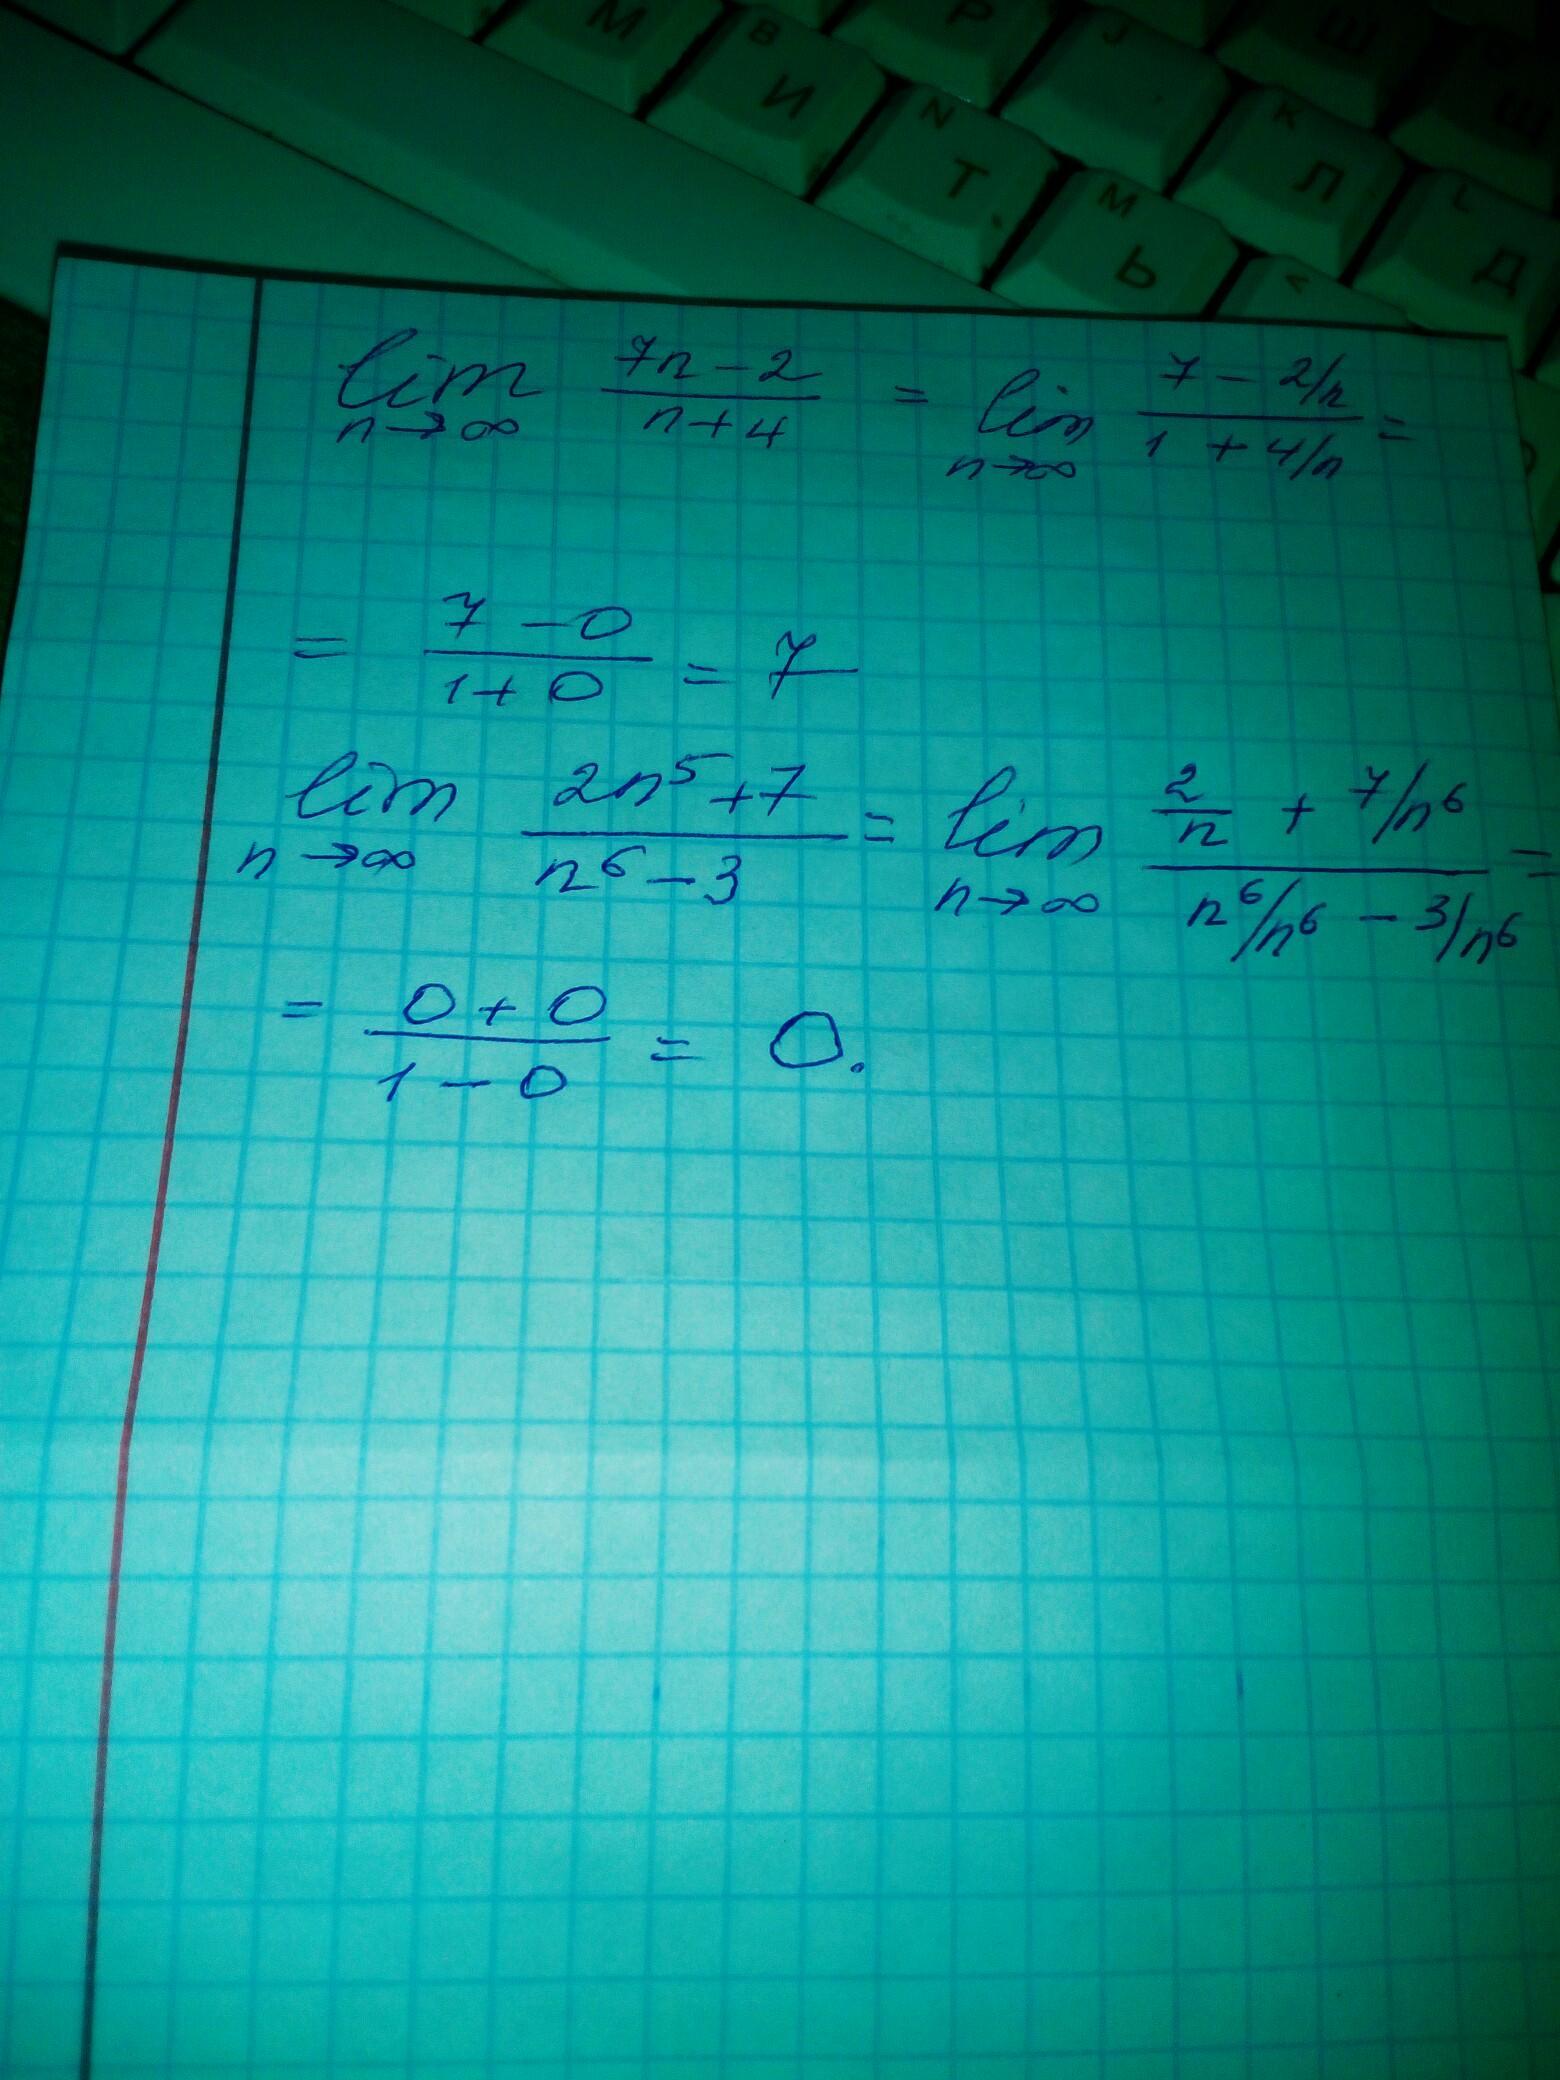 М В И Р J Ш Щ
N Т К Л
M Ь L Д
<
lim n→∞ (7n-2)/(n+4) = lim n→∞ (7 - 2/n)/(1 + 4/n) =
= (7-0)/(1+0) = 7
lim n→∞ (2n⁵+7)/(n⁶-3) = lim n→∞ (2/n + 7/n⁶)/(n⁶/n⁶ - 3/n⁶) =
= (0+0)/(1-0) = 0.